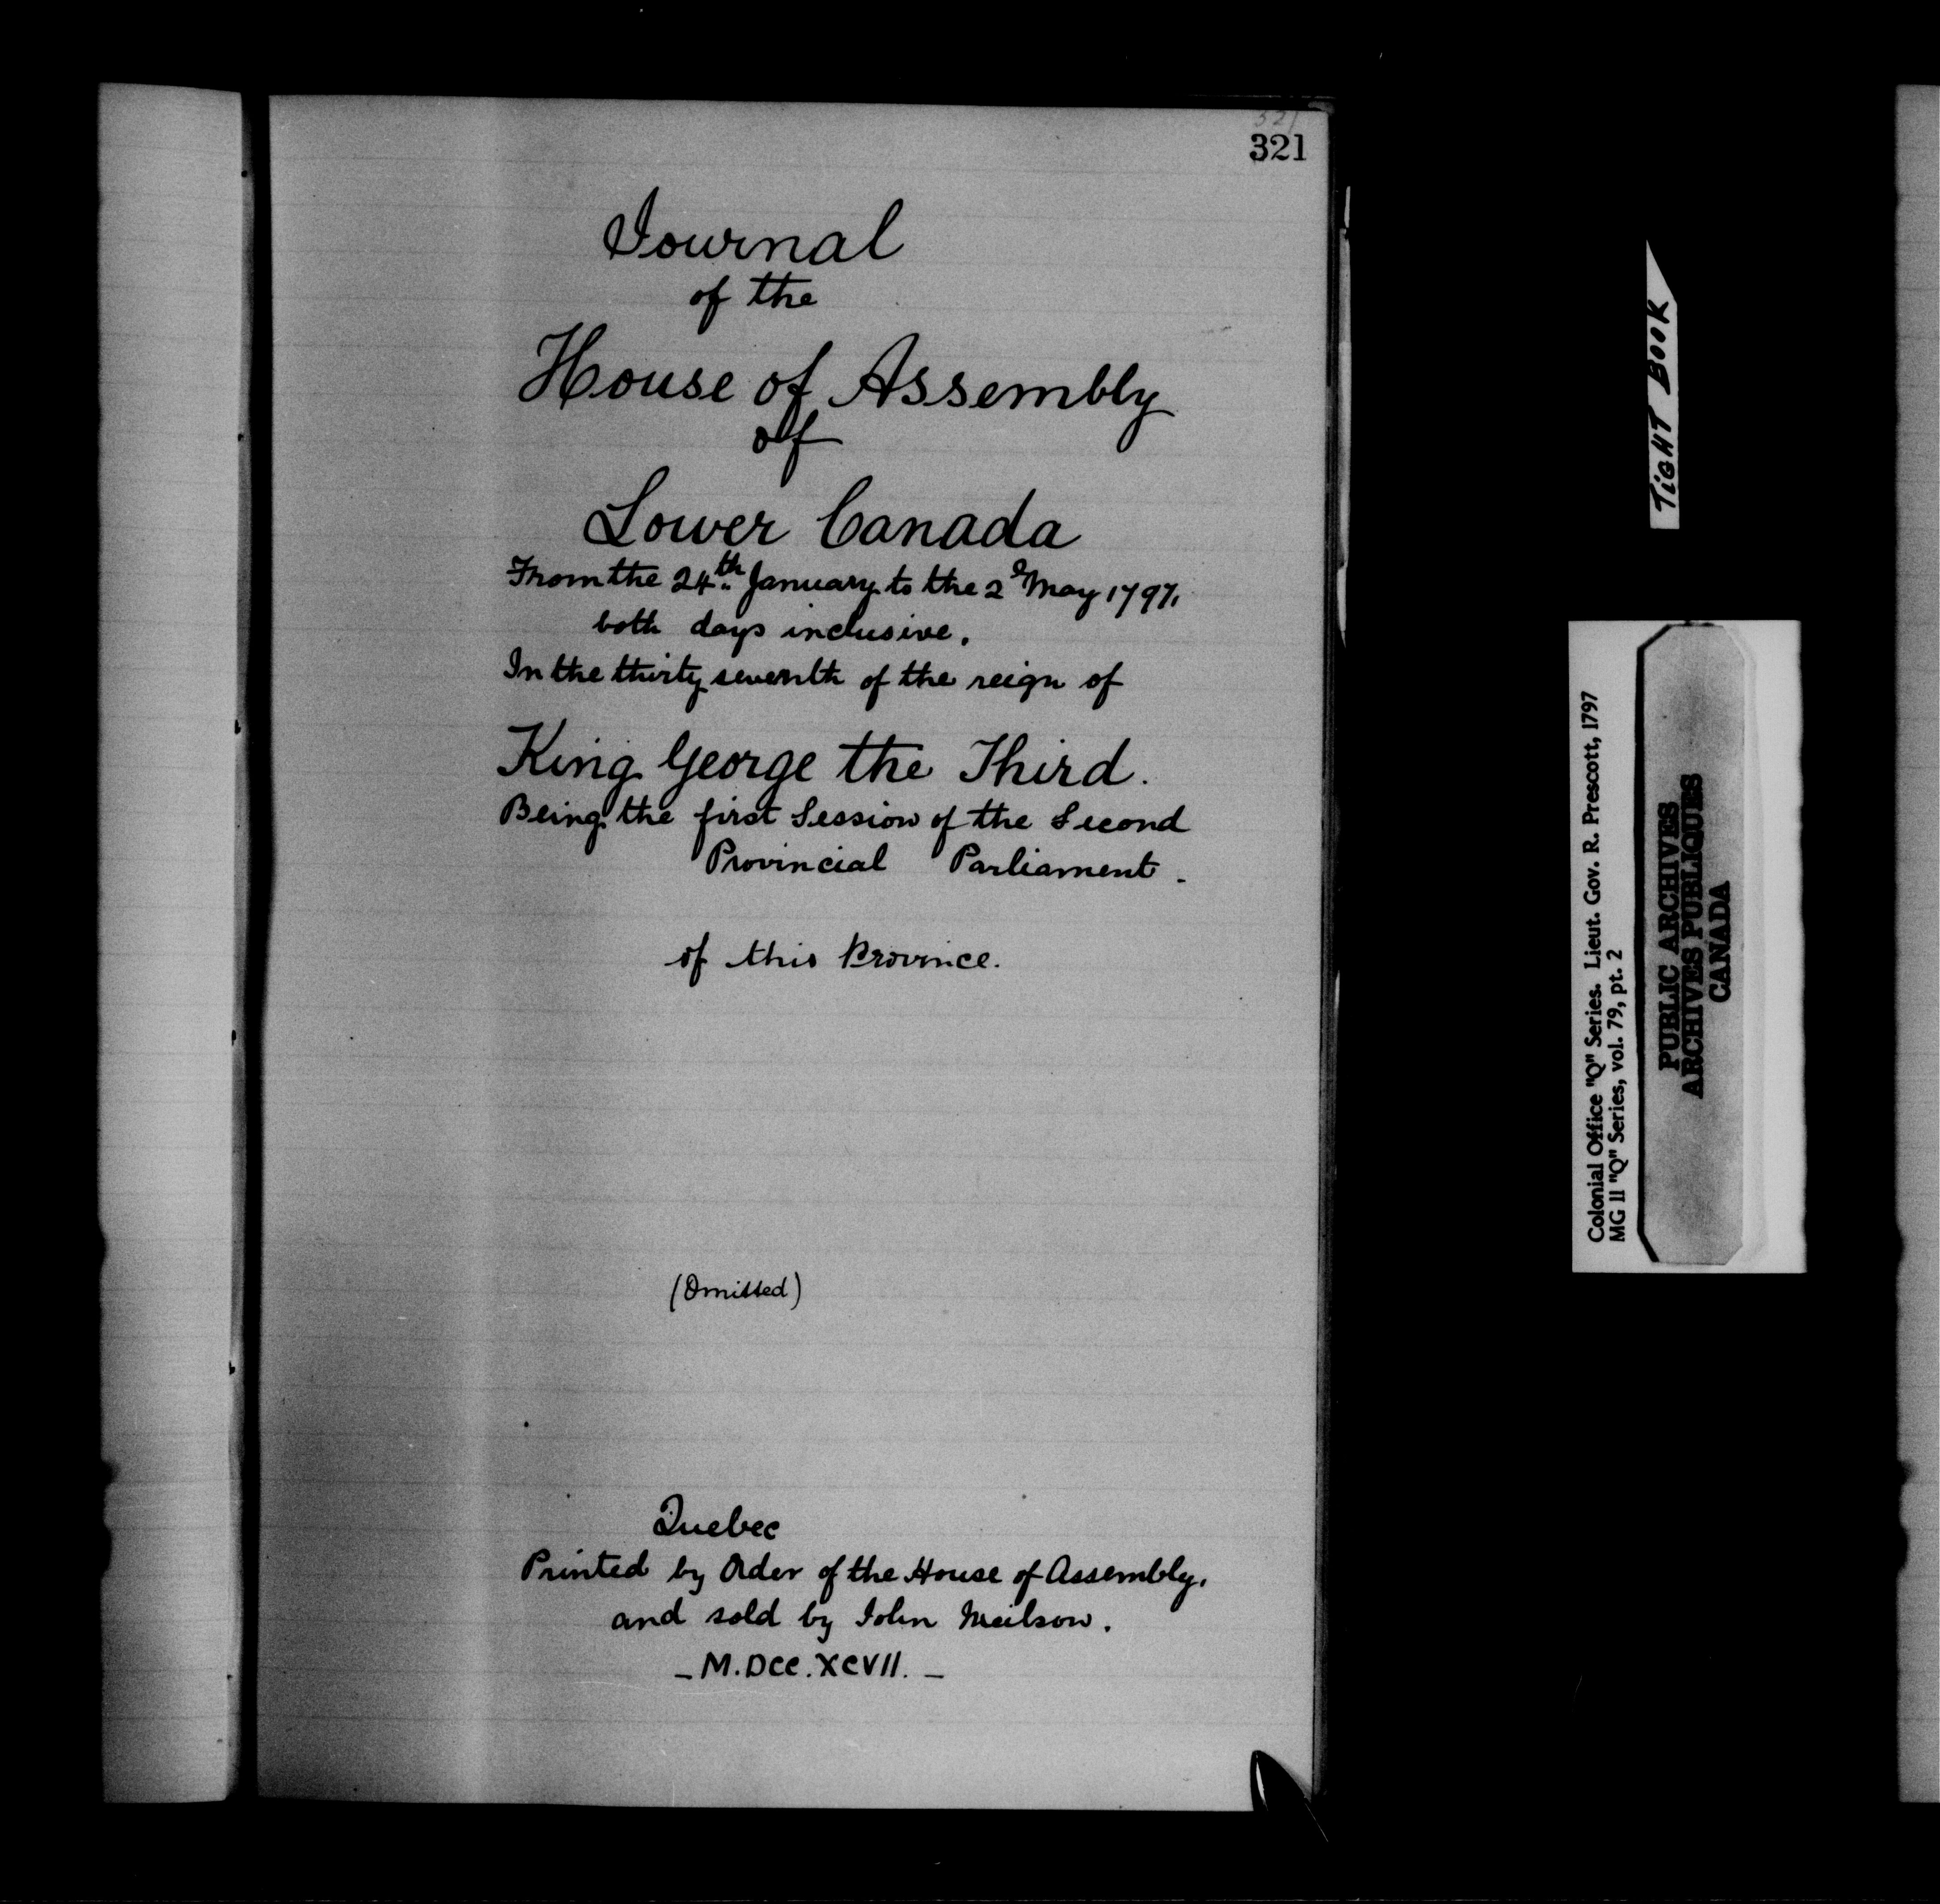 321
321
Journal
of the
House of Assembly
of
Lower Canada
From the 24th January to the 2d May 1797,
both days inclusive.
In the thirty seventh of the reign of
King George the Third.
Being the first Session of the Second
Provincial Parliament.
of this Province.
(Omitted)
Quebec
Printed by Order of the House of Assembly,
and sold by John Neilson.
- M.DCC.XCVII. -
TIGHT BOOK
Colonial Office "Q" Series. Lieut. Gov. R. Prescott, 1797
MG 11 "Q" Series, vol. 79, pt. 2
PUBLIC ARCHIVES
ARCHIVES PUBLIQUES
CANADA